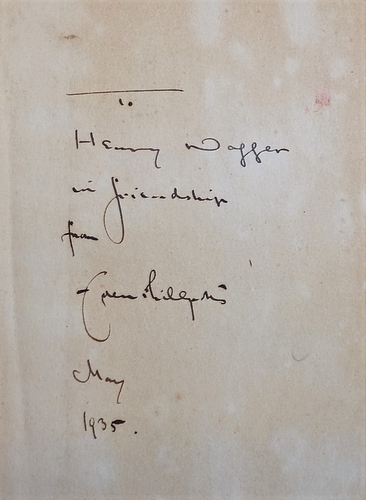 to
Henry
in friendship
from
Eden Phillpotts
May
1935.